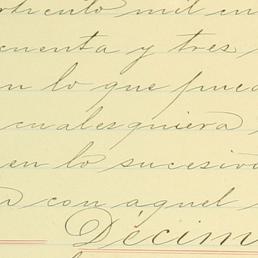 artículo mil cin
cuenta y tres
n lo que pueda
cualesquiera
en lo sucesivo
a con aquel
Décim